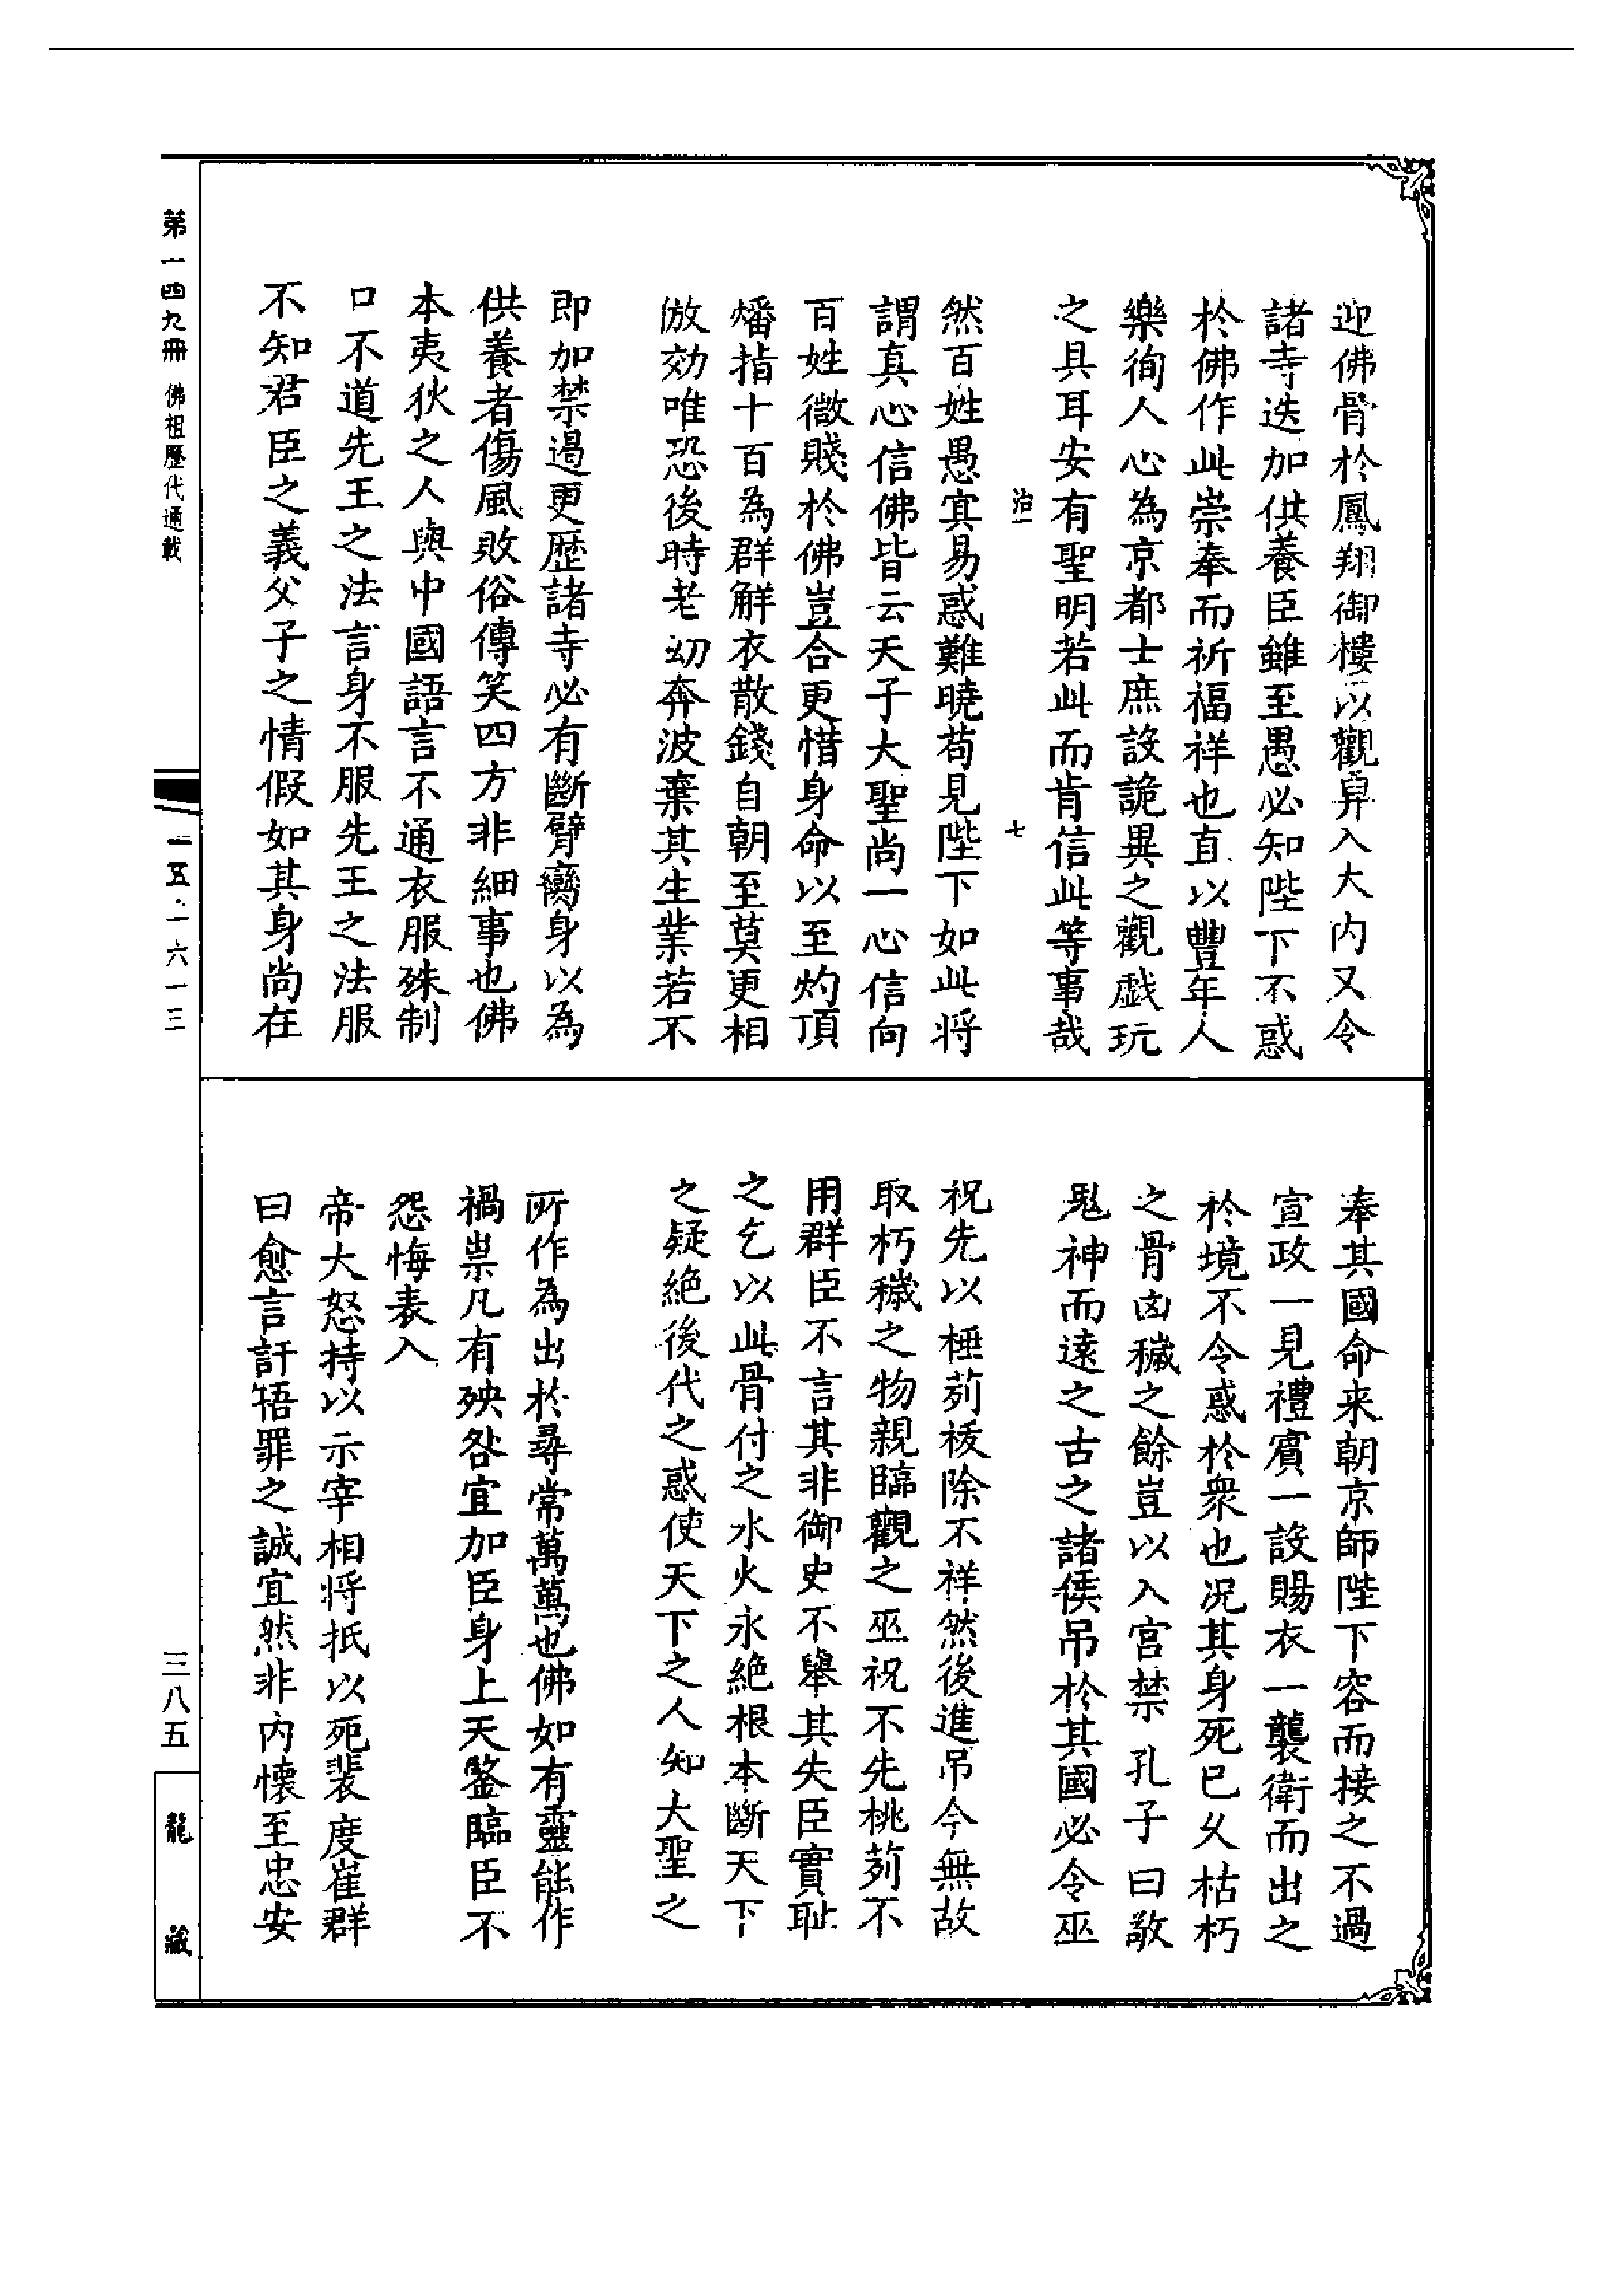 迎佛骨於鳳翔御樓以觀舁入大内又令
諸寺迭加供養臣雖至愚必知陛下不惑
於佛作此崇奉而祈福祥也直以豐年人
樂徇人心為京都士庶設詭異之觀戯玩
之具耳安有聖明若此而肯信此等事哉
治一 七
然百姓愚㝠易惑難曉苟見陛下如此将
謂真心信佛皆云天子大聖尚一心信向
百姓微賤於佛豈合更惜身命以至灼頂
燔指十百為群解衣散錢自朝至莫更相
倣効唯恐後時老㓜奔波棄其生業若不
即加禁遏更歷諸寺必有斷臂臠身以為
供養者傷風敗俗傳笑四方非細事也佛
本夷狄之人與中國語言不通衣服殊制
口不道先王之法言身不服先王之法服
不知君臣之義父子之情假如其身尚在
奉其國命来朝京師陛下容而接之不過
宣政一見禮賓一設賜衣一襲衛而出之
於境不令惑於衆也况其身死已久枯朽
之骨凶穢之餘豈以入宫禁孔子曰敬
鬼神而遠之古之諸侯吊於其國必令巫
祝先以桃茢祓除不祥然後進吊今無故
取朽穢之物親臨觀之巫祝不先桃茢不
用群臣不言其非御史不舉其失臣實耻
之乞以此骨付之水火永絶根本斷天下
之疑絶後代之惑使天下之人知大聖之
所作為出於尋常萬萬也佛如有靈能作
禍祟凡有殃咎宜加臣身上天鑒臨臣不
怨悔表入
帝大怒持以示宰相将抵以死裴度崔群
曰愈言訐牾罪之誠宜然非内懐至忠安
第一四九冊 佛祖歷代通載
一五·一六一三
三八五
龍藏